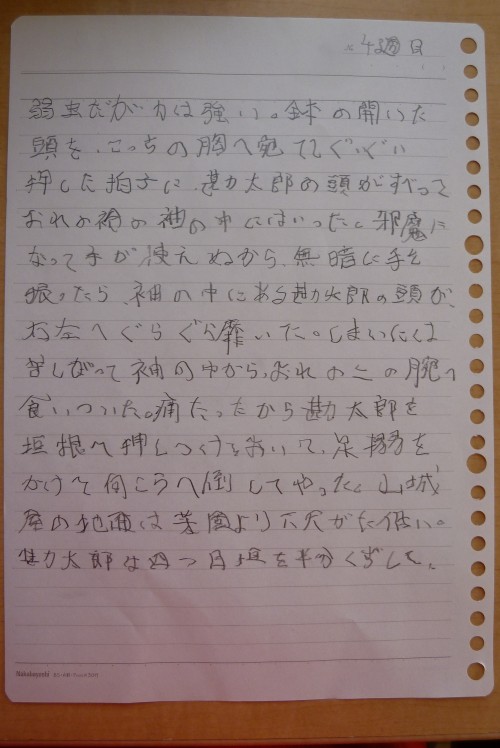 4週目
弱虫だが力は強い。鉢の開いた
頭を、こっちの胸へ宛ててぐいぐい
押した拍子に、勘太郎の頭がすべって
おれの袷の袖の中にはいった。邪魔に
なって手が使えぬから、無暗に手を
振ったら、袖の中にある勘太郎の頭が、
右左へぐらぐら靡いた。しまいには
苦しがって袖の中から、おれの二の腕へ
食いついた。痛かったから勘太郎を
垣根へ押しつけておいて、足搦を
かけて向こうへ倒してやった。山城
屋の地面は菜園より六尺がた低い。
勘太郎は四つ目垣を半分くずして、
Nakabayashi